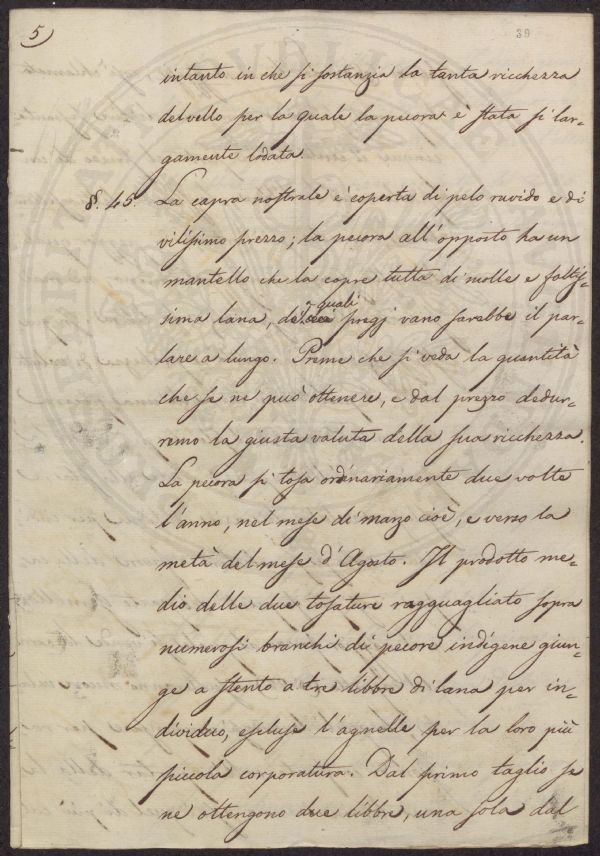 5)
39
intanto in che si sostanzia la tanta ricchezza
del vello per la quale la pecora è stata sì lar-
gamente lodata.
§. 45. La capra nostrale è coperta di pelo ruvido e di
vilissimo prezzo; la pecora all'opposto ha un
mantello che la copre tutta di molle e foltis-
quali
sima lana, de' pregj vano sarebbe il par-
lare a lungo. Preme che si veda la quantità
che se ne può ottenere, e dal prezzo dedur-
remo la giusta valuta della sua ricchezza.
La pecora si tosa ordinariamente due volte
l'anno, nel mese di marzo cioè, e verso la
metà del mese d'Agosto. Il prodotto me-
dio delle due tosature ragguagliato sopra
numerosi branchi di pecore indigene giun-
ge a stento a tre libbre di lana per in-
dividuo, escluse l'agnelle per la loro più
piccola corporatura. Dal primo taglio se
ne ottengono due libbre, una sola dal